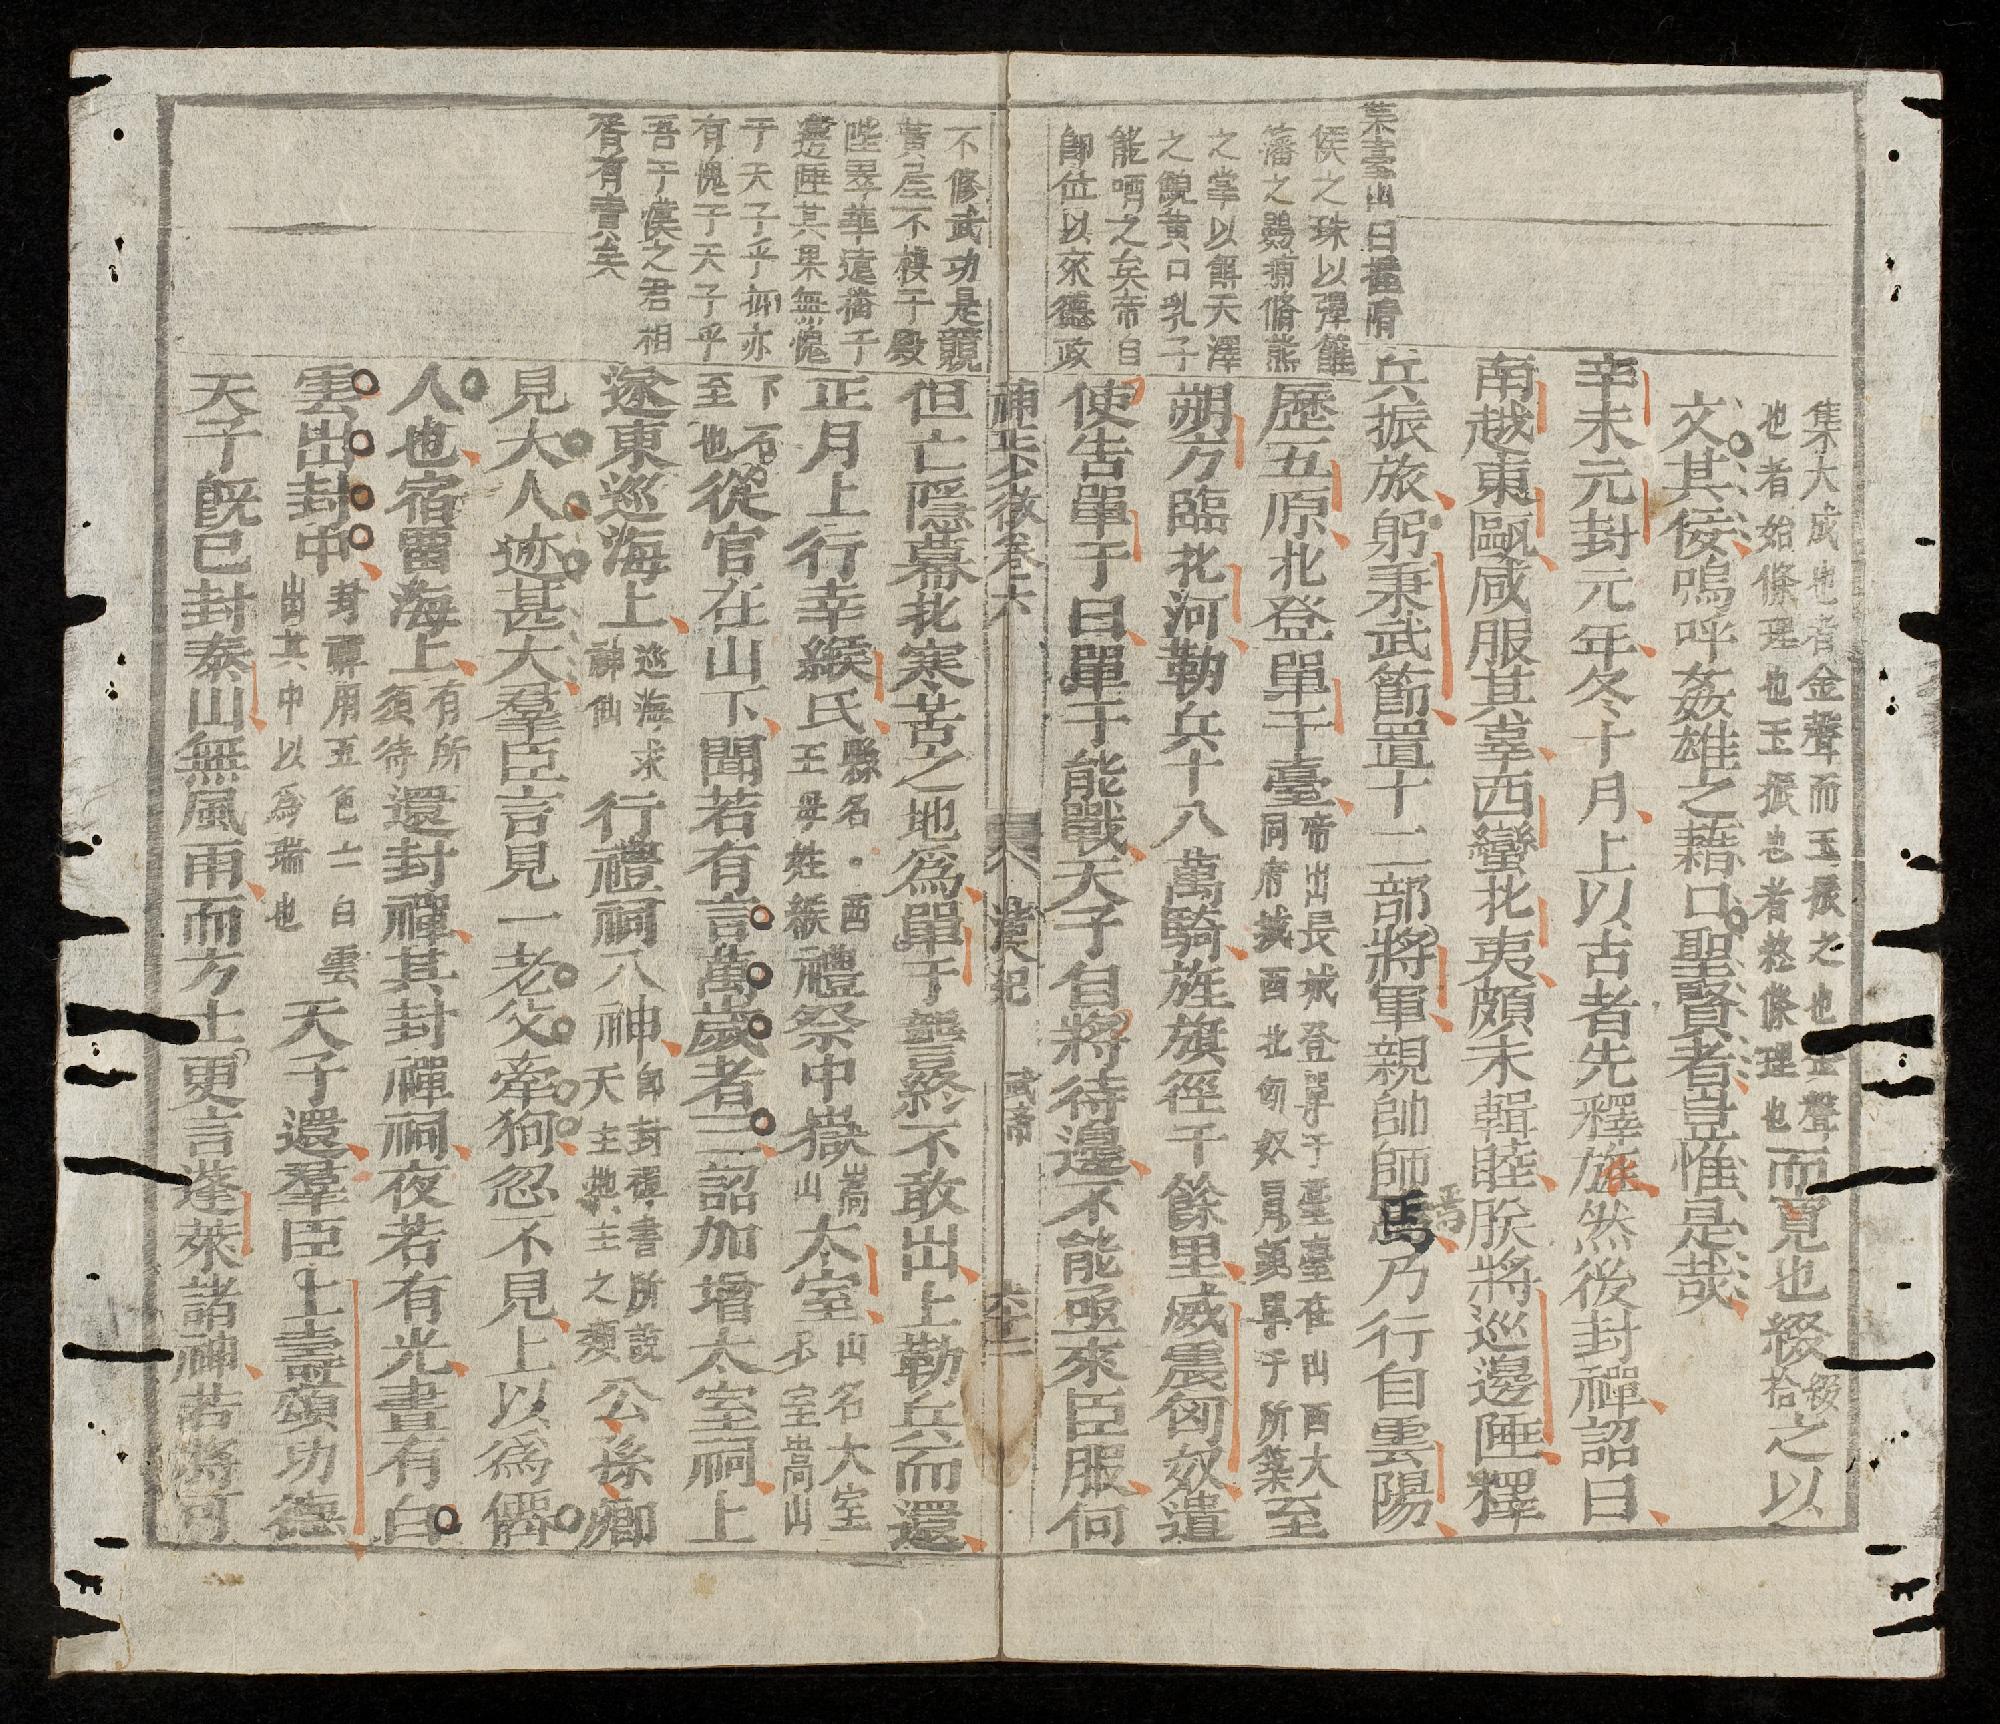 葉臺山曰攜隋
侯之珠以彈雛
籓之鷃捕脩熊
之掌以餌天澤
之貌黄口乳子
能哂之矣帝自
即位以來德政
不修武功是競
黃屋不棲于殿
陛翠華遠播于
邊陲其果無愧
于天子乎抑亦
有愧于天子乎
吾于漢之君相
胥有責矣
集大成也者金聲而玉振之也金聲
也者始條理也玉振也者終條理也而寬也綴綴拾之以
文其佞嗚呼姦雄之藉口聖賢者豈惟是哉
辛未元封元年冬十月上以古者先釋旅然後封禪詔曰
南越東甌咸服其辜西蠻北夷頗未輯睦朕將巡邊陲釋
兵振旅躬秉武節置十二部將軍親帥師焉乃行自雲陽
歷五原北登單于臺帝出長城登單于臺臺在山西大同府城西北匈奴冒頓單于所築至
朔方臨北河勒兵十八萬騎旌旗徑千餘里威震匈奴遣
使告單于曰單于能戰天子自將待邊不能亟來臣服何
補正少微卷六 漢紀 武帝 六十二
但亡隱幕北寒苦之地爲單于讋終不敢出上勒兵而還
正月上行幸緱氏縣名西王母姓緱禮祭中嶽嵩山太室山名大室不室嵩山
下下石至也從官在山下聞若有言萬歲者三詔加增太室祠上
遂東巡海上巡海求神仙行禮祠八神即封禪書所說天主地主之類公孫卿
見大人迹甚大羣臣言見一老父牽狗忽不見上以爲僊
人也宿留海上有所須待還封禪其封禪祠夜若有光晝有白
雲出封中封禪用五色土白雲出其中以爲瑞也天子還羣臣上壽頌功德
天子既已封泰山無風雨而方士更言蓬萊諸神若將可